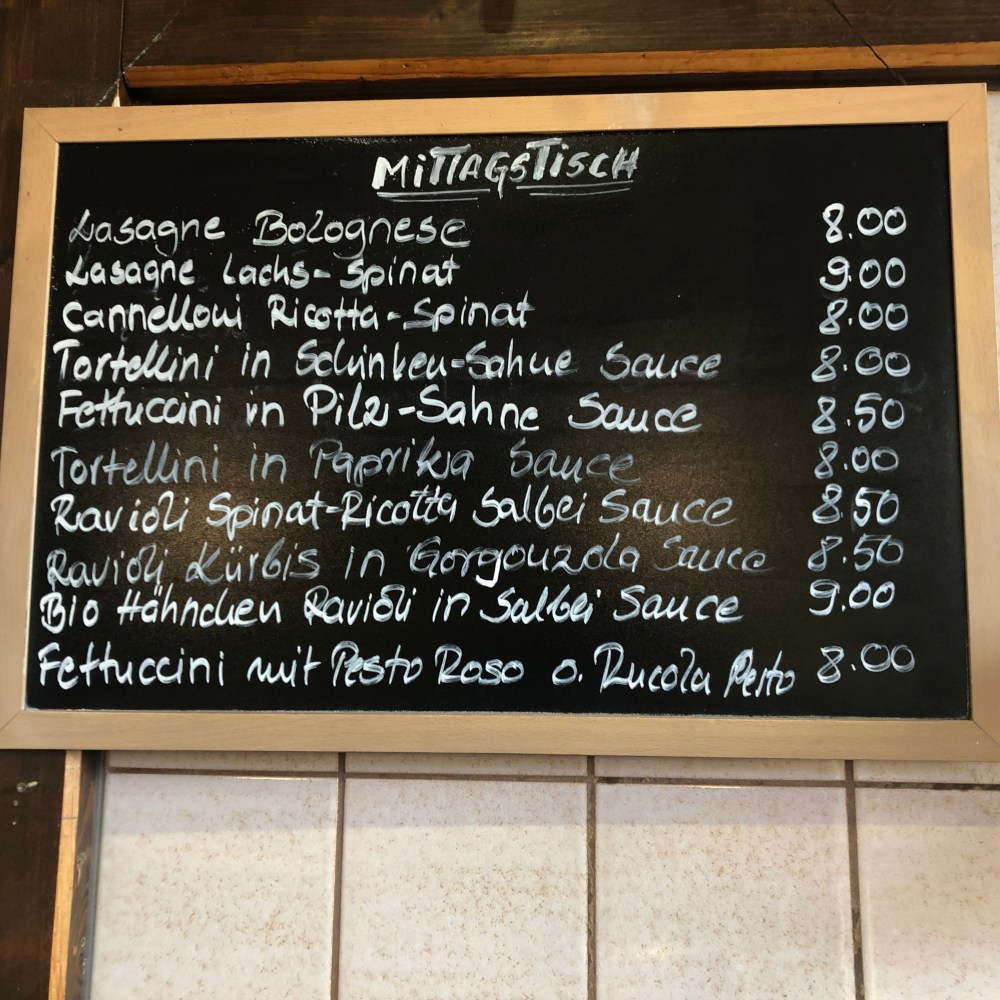 MiTTAGSTiSCH
Lasagne Bolognese 8.00
Lasagne Lachs-Spinat 9.00
Cannelloni Ricotta-Spinat 8.00
Tortellini in Schinken-Sahne Sauce 8.00
Fettuccini in Pilz-Sahne Sauce 8.50
Tortellini in Paprika Sauce 8.00
Ravioli Spinat-Ricotta Salbei Sauce 8.50
Ravioli Kürbis in Gorgonzola Sauce 8.50
Bio Hähnchen Ravioli in Salbei Sauce 9.00
Fettuccini mit Pesto Roso o. Rucola Pesto 8.00